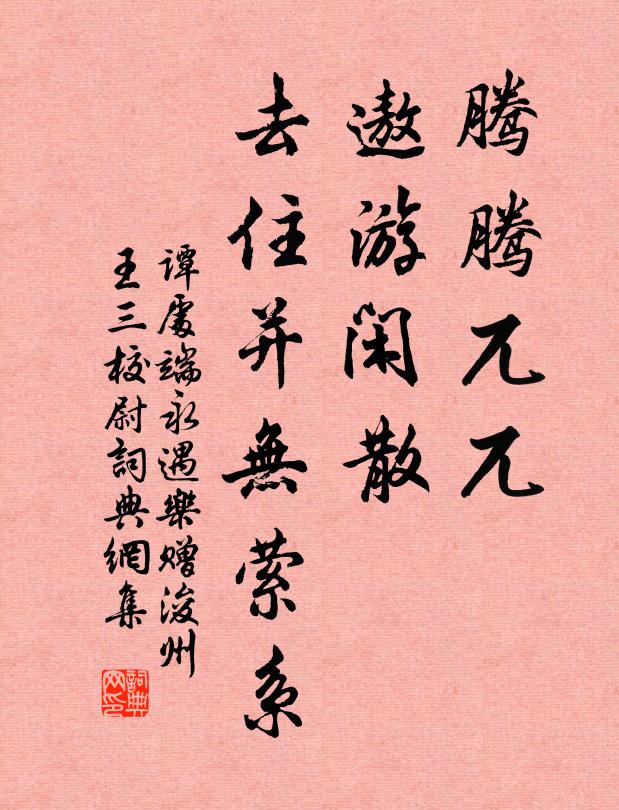 腾腾兀兀
遨游闲散
去住并無萦系
谭處端永遇樂赠浚州
王三校尉詞典網集
詞典网印